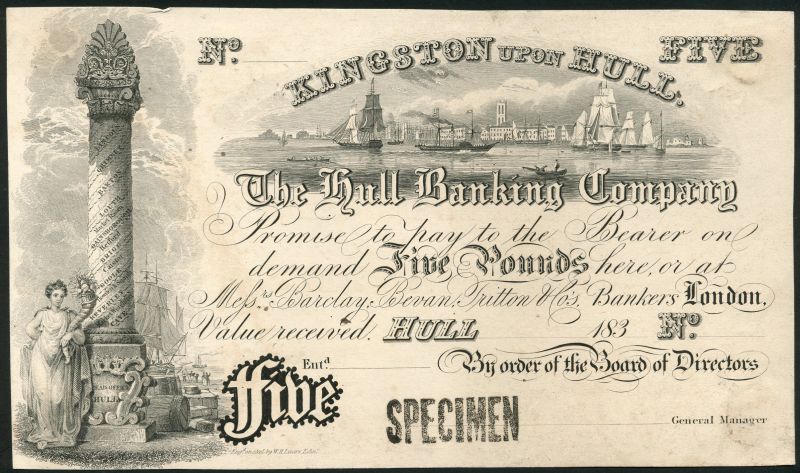 No. FIVE
KINGSTON UPON HULL.
The Hull Banking Company
Promise to pay to the Bearer on
demand Five Pounds here, or at
Messrs. Barclay, Bevan, Tritton & Co's, Bankers London,
Value received. HULL 183 No.
Entd. By order of the Board of Directors
five
SPECIMEN
General Manager
HEAD OFFICE
HULL
BARTON
LOUTH
GAINSBOROUGH
BRIGG
GOOLE
Engraved by W.H. Lizars, Edinr.